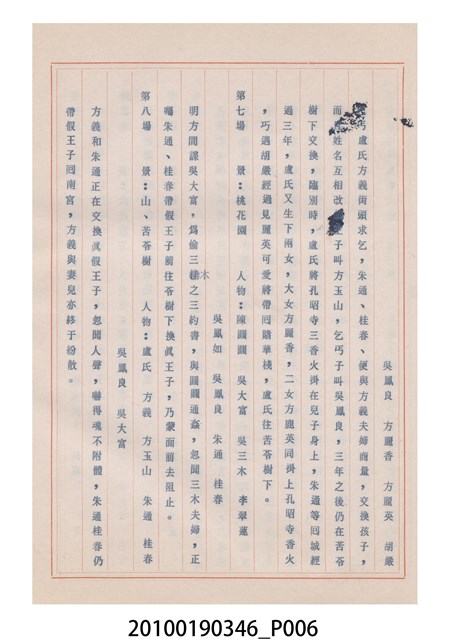 吳鳳良 方麗香 方麗英 胡嚴
丐盧氏方義街頭求乞，朱通、桂春、便與方義夫婦商量，交換孩子，
而 姓名互相改 子叫方玉山，乞丐子叫吳鳳良，三年之後仍在苦苓
樹下交換，臨別時，盧氏將孔昭寺三香火掛在兒子身上，朱通等回城經
過三年，盧氏又生下兩女，大女方麗香，二女方麗英同掛上孔昭寺香火
，巧遇胡嚴經過見麗英可愛將帶回賭華棧，盧氏往苦苓樹下。
第七場 景：桃花園 人物：陳圓圓 吳大富 吳三木 李翠蓮
吳鳳如 吳鳳良 朱通 桂春
明方間諜吳大富，為偷三木之三約書，與圓圓通姦，忽聞三木夫婦，正
囑朱通、桂春帶假王子前往苓樹下換眞王子，乃蒙面前去阻止。
第八場 景：山、苦苓樹 人物：盧氏 方義 方玉山 朱通 桂春
吳鳳良 吳大富
方義和朱通正在交換眞假王子，忽聞人聲，嚇得魂不附體，朱通桂春仍
帶假王子回南宮，方義與妻兒亦終于紛散。
20100190346_P006